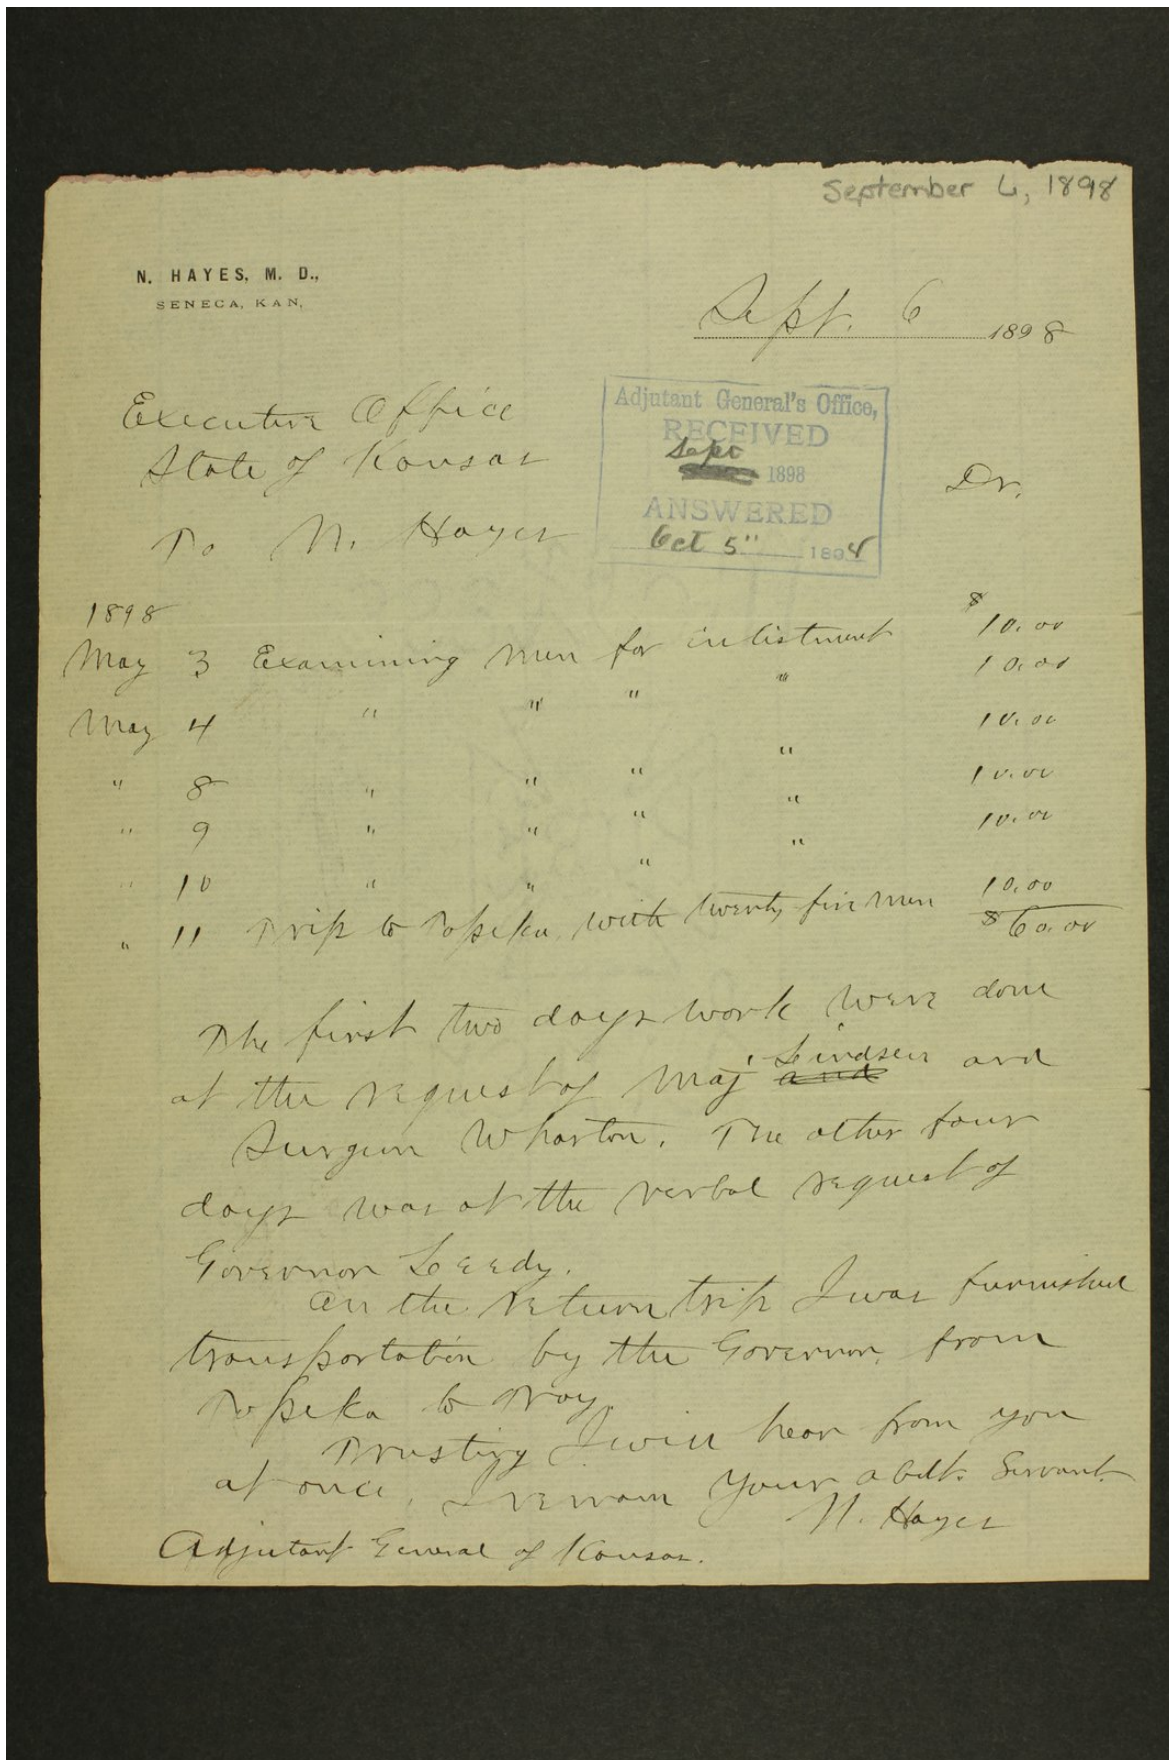 September 6, 1898
N. HAYES, M. D.,
SENECA, KAN,
Sept. 6 1898
Executive Office
State of Kansas Dr.
To N. Hayes
Adjutant General's Office,
RECEIVED
Sept 1898
ANSWERED
Oct 5" 1898
1898
May 3 Examining men for inlistment $ 10.00
May 4 " " " " 10.00
" 8 " " " " 10.00
" 9 " " " " 10.00
" 10 " " " " 10.00
" 11 Trip to Topeka with twenty five men 10.00
$60.00
The first two days work were done
at the request of Maj Lindsey and
Surgeon Wharton. The other four
days was at the verbal request of
Governor Leedy.
On the return trip I was furnished
transportation by the Governor from
Topeka to Troy.
Trusting I will hear from you
at once, I remain your obdt. Servant.
N. Hayes
Adjutant General of Kansas.